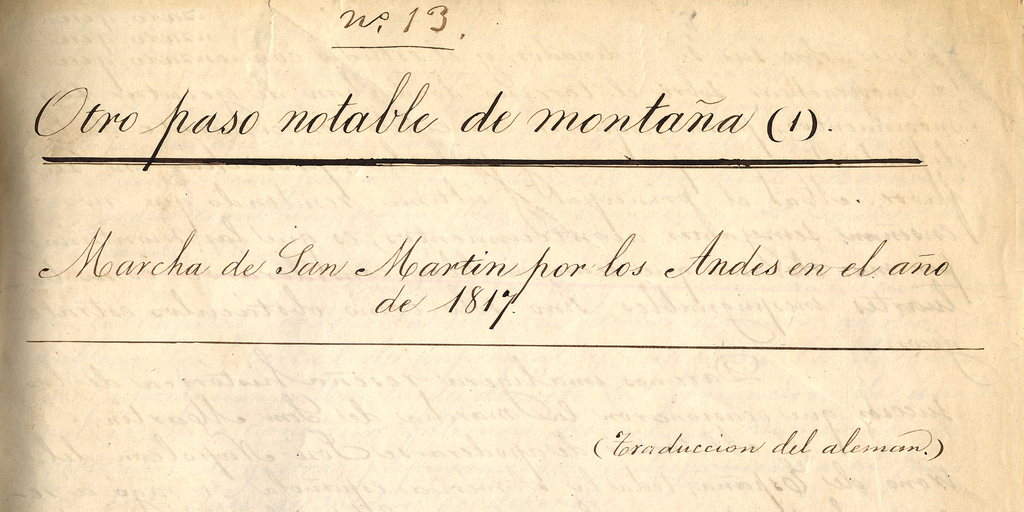 nº 13.
Otro paso notable de montaña (1).
Marcha de San Martin por los Andes en el año
de 1817.
(Traduccion del aleman.)